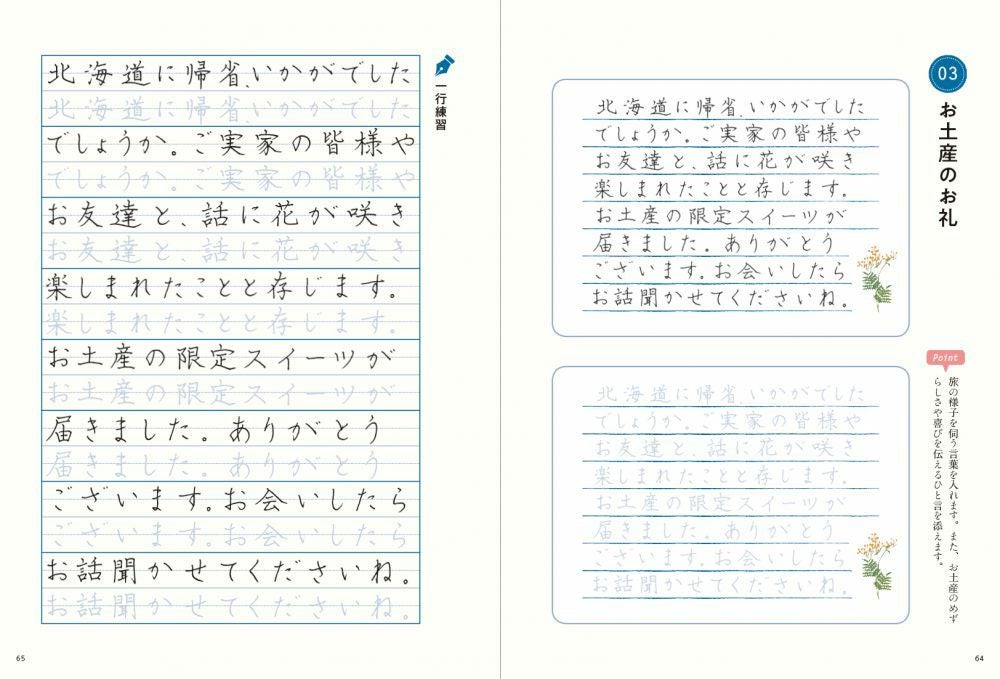 03
お土産のお礼
北海道に帰省、いかがでした
でしょうか。ご実家の皆様や
お友達と、話に花が咲き
楽しまれたことと存じます。
お土産の限定スイーツが
届きました。ありがとう
ございます。お会いしたら
お話聞かせてくださいね。
Point
旅の様子を伺う言葉を入れます。また、お土産のめず
らしさや喜びを伝えるひと言を添えます。
北海道に帰省、いかがでした
でしょうか。ご実家の皆様や
お友達と、話に花が咲き
楽しまれたことと存じます。
お土産の限定スイーツが
届きました。ありがとう
ございます。お会いしたら
お話聞かせてくださいね。
64
一行練習
北海道に帰省、いかがでした
北海道に帰省、いかがでした
でしょうか。ご実家の皆様や
でしょうか。ご実家の皆様や
お友達と、話に花が咲き
お友達と、話に花が咲き
楽しまれたことと存じます。
楽しまれたことと存じます。
お土産の限定スイーツが
お土産の限定スイーツが
届きました。ありがとう
届きました。ありがとう
ございます。お会いしたら
ございます。お会いしたら
お話聞かせてくださいね。
お話聞かせてくださいね。
65